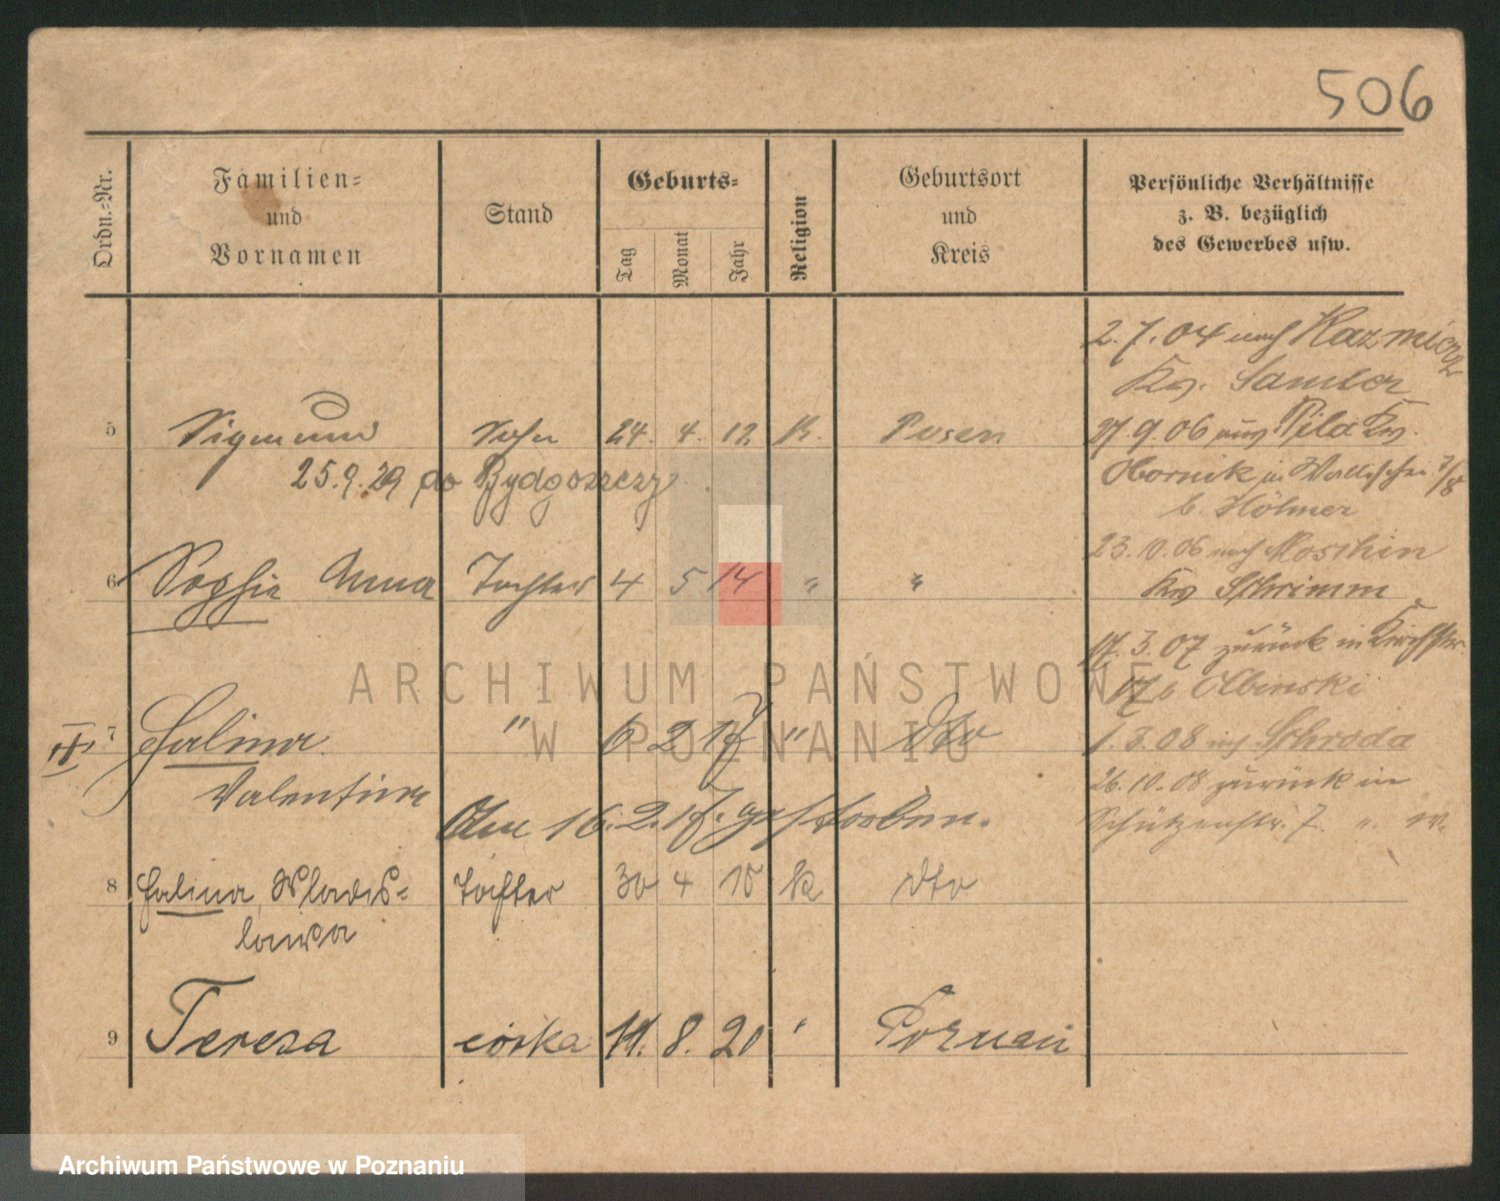 506
Ordn.-Nr.
Familien-
und
Vornamen
Stand
Geburts-
Tag
Monat
Jahr
Religion
Geburtsort
und
Kreis
Persönliche Verhältnisse
z. B. bezüglich
des Gewerbes usw.
2.7.04 nach Kazmierz
Kr. Samter
5 Sigmund Sohn 24. 4. 12 K. Posen
27.9.06 aus Pila Kr.
25.9.29 do Bydgoszczy
Obornik in Wallischei 7/8
b. Höhner
23.10.06 nach Moschin
6 Sophie Anna Tochter 4 5 14 " "
Kr Schrimm
17.3.07 zurück in Kirchstr.
17 b Olbinski
7 Halina " 6 2 17 " dto
1.3.08 nach Schroda
Valentina
26.10.08 zurück in
Am 16.2.17. gestorben.
Schützenstr. 7.
8 Halina, Wladis- Tochter 30 4 18 K dto
lawa
9 Teresa córka 11. 8. 20 " Poznań
ARCHIWUM PAŃSTWOWE
W POZNANIU
Archiwum Państwowe w Poznaniu